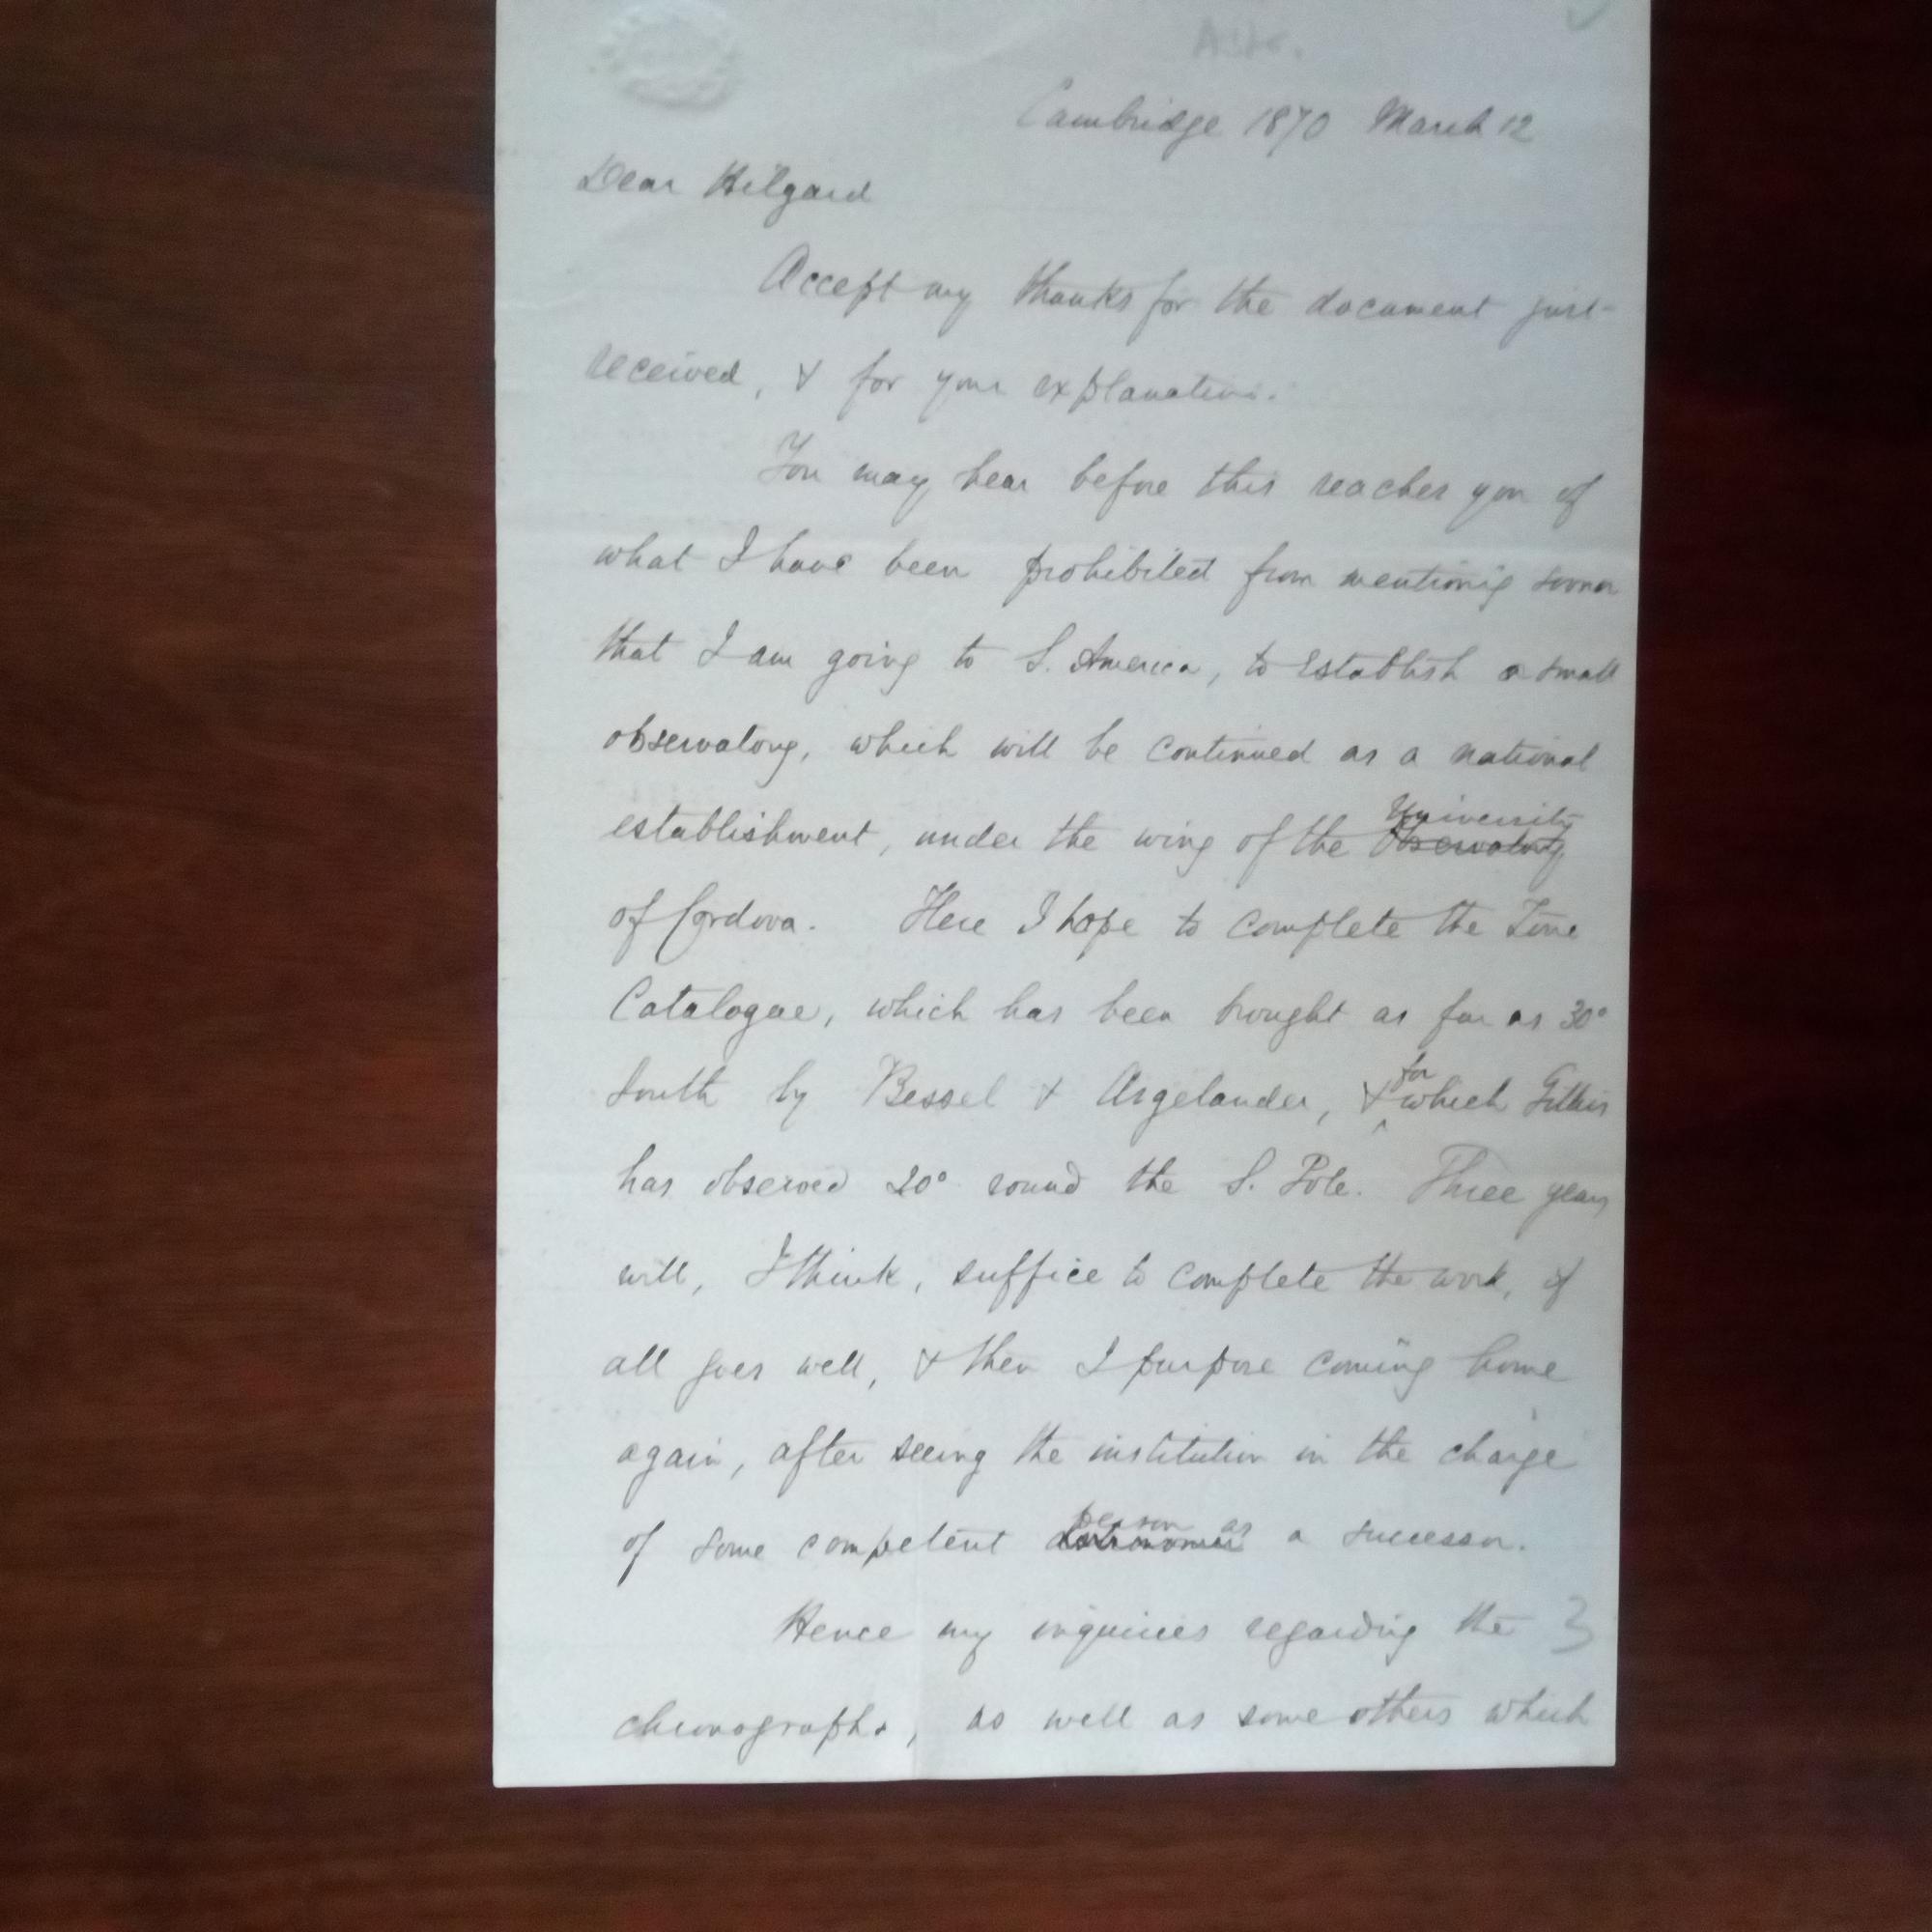 Astr.
Cambridge 1870 March 12
Dear Hilgard
Accept my thanks for the document just
received, & for your explanations.
You may hear before this reaches you of
what I have been prohibited from mentioning sooner
that I am going to S. America, to establish a small
observatory, which will be continued as a national
University
establishment, under the wing of the Observatory
of Cordova. Here I hope to complete the Zone
Catalogue, which has been brought as far as 30°
for
South by Bessel & Argelander, & which Gilliss
has observed 20° round the S. Pole. Three years
will, I think, suffice to complete the work, if
all goes well, & then I purpose coming home
again, after seeing the institution in the charge
person as
of some competent astronomer a successor.
Hence my inquiries regarding the 3
chronographs, as well as some others which